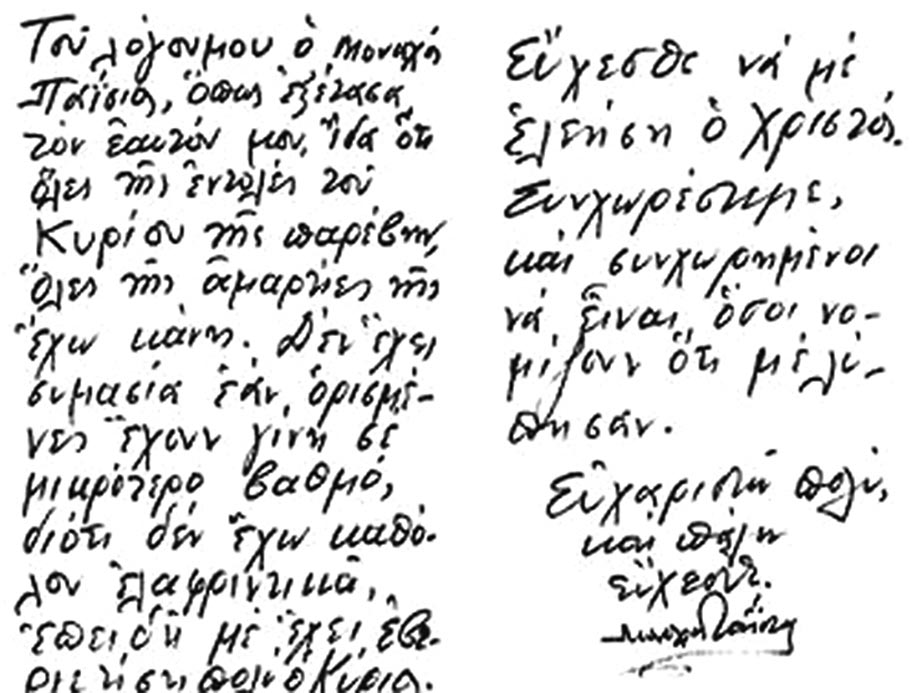 Τοῦ λόγουμου ὁ Μοναχός
Παΐσιος, ὅπως ἐξέτασα,
τόν ἑαυτόν μου, εἶδα ὅτι
ὅλες τῆς ἐντολές τοῦ
Κυρίου τῆς παρέβην,
ὅλες τῆς ἁμαρτίες τῆς
ἔχω κάνη. Δέν ἔχει
σημασία ἐάν ὁρισμέ-
νες ἔχουν γίνη σέ
μικρότερο βαθμό,
διότι δέν ἔχω καθό-
λου ἐλαφρυντικά,
ἐπειδή μέ ἔχει εὐερ-
γετήση πολύ ὁ Κύριος.
Εὔχεσθε νά μέ
ἐλεήση ὁ Χριστός.
Συγχωρέστεμε,
καί συγχωρημένοι
νά εἶναι ὅσοι νο-
μίζουν ὅτι μέ λύ-
πησαν.
Εὐχαριστῶ πολύ,
καί πάλιν
εὔχεσθε.
Μοναχός Παΐσιος